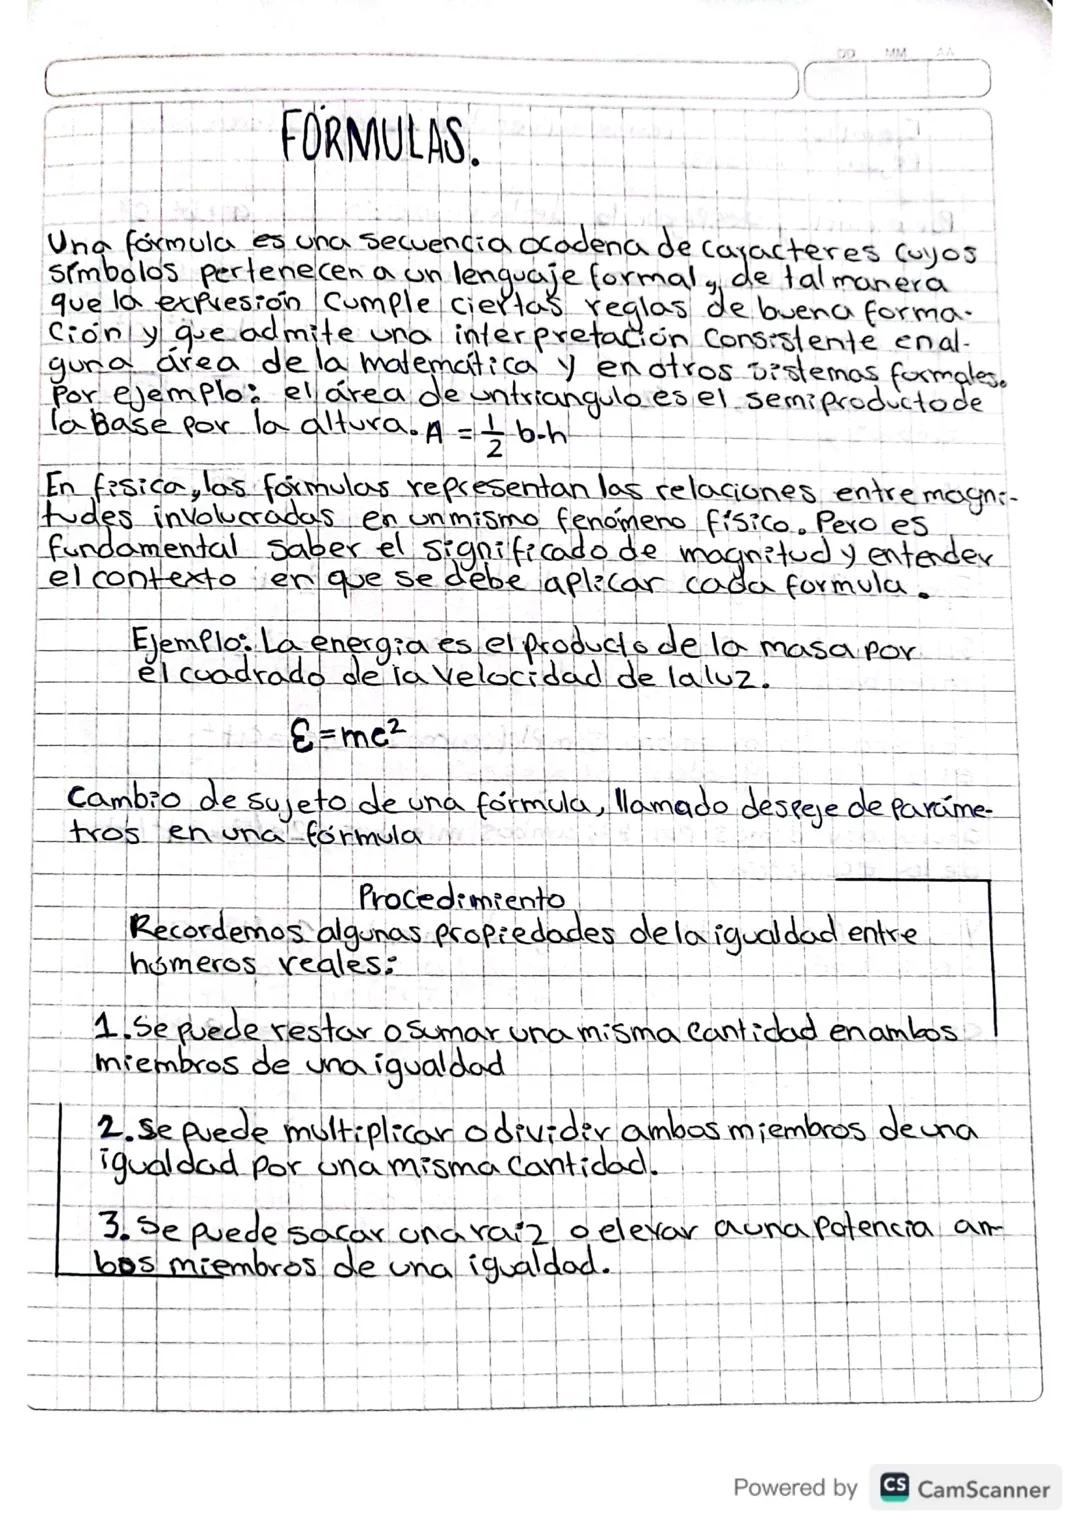 DD MM AA
FÓRMULAS.
Una fórmula es una secuencia o cadena de caracteres cuyos
símbolos pertenecen a un lenguaje formal, de tal manera
que la expresión cumple ciertas reglas de buena forma-
ción y que admite una interpretación consistente en al-
guna área de la matemática y en otros sistemas formales.
Por ejemplo: el área de un triangulo es el semiproducto de
la Base por la altura. A = 1/2 b·h
En física, las fórmulas representan las relaciones entre magni-
tudes involucradas en un mismo fenómeno físico. Pero es
fundamental saber el significado de magnitud y entender
el contexto en que se debe aplicar cada formula.
Ejemplo: La energia es el producto de la masa por
el cuadrado de la velocidad de la luz.
E=mc²
Cambio de sujeto de una fórmula, llamado despeje de paráme-
tros en una fórmula
Procedimiento
Recordemos algunas propiedades de la igualdad entre
números reales:
1. Se puede restar o sumar una misma cantidad en ambos
miembros de una igualdad
2. Se puede multiplicar o dividir ambos miembros de una
igualdad por una misma cantidad.
3. Se puede sacar una raiz o elevar a una potencia am-
bos miembros de una igualdad.
Powered by CS CamScanner